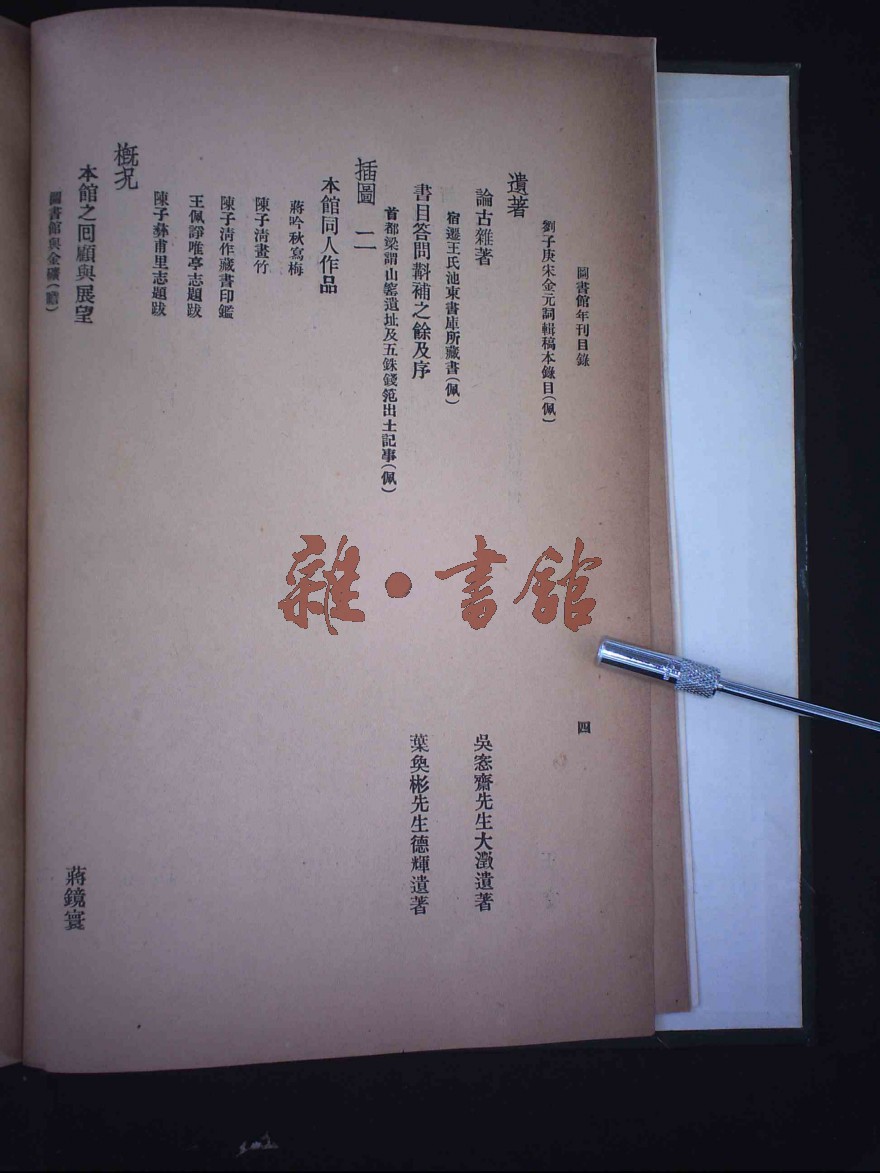 圖書館年刊目錄
四
劉子庚宋金元詞輯稿本錄目(佩)
遺著
論古雜著
吳愙齋先生大澂遺著
宿遷王氏池東書庫所藏書(佩)
書目答問斠補之餘及序
葉奐彬先生德輝遺著
首都梁謂山窰遺址及五銖錢笵出土記事(佩)
插圖 二
本館同人作品
蔣吟秋寫梅
陳子清畫竹
陳子清作藏書印鑑
王佩諍唯亭志題跋
陳子彝甫里志題跋
概況
本館之回顧與展望
蔣鏡寰
圖書館與金礦(瞻)
雜·書館